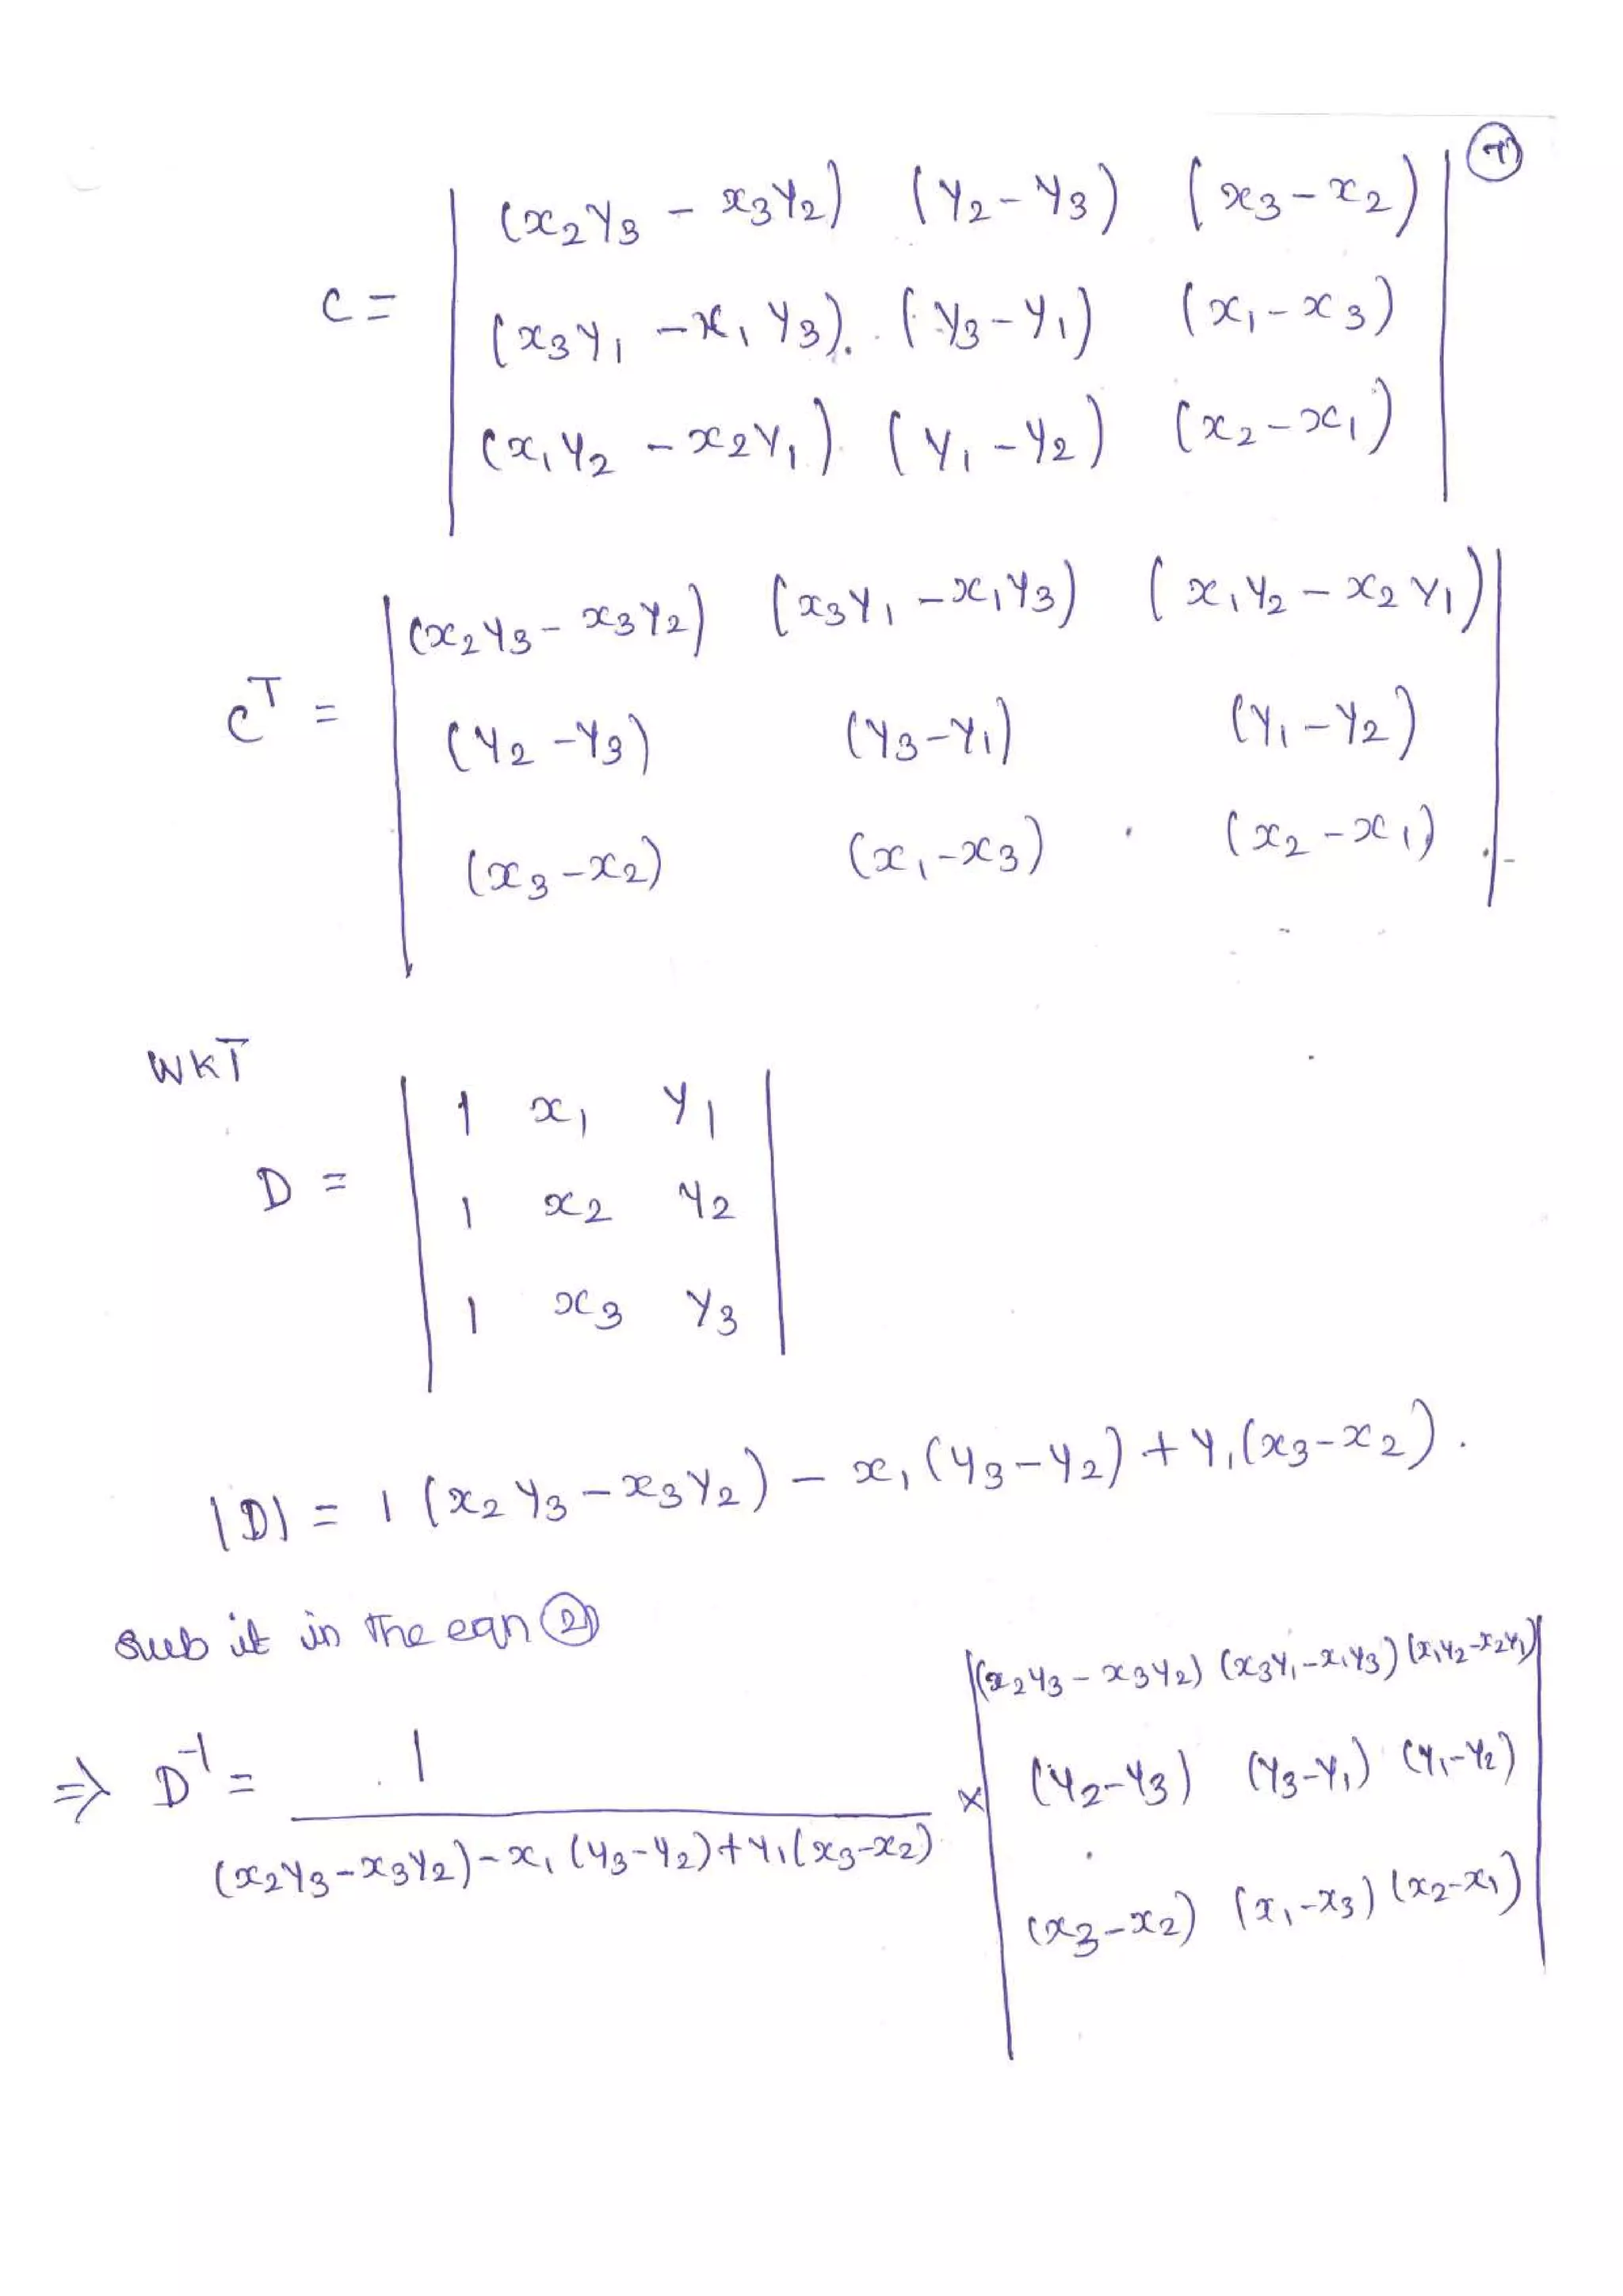 7
(x₂y₃ - x₃y₂) (y₂-y₃) (x₃-x₂)
C = (x₃y₁ -x₁y₃) (y₃-y₁) (x₁-x₃)
(x₁y₂ -x₂y₁) (y₁-y₂) (x₂-x₁)
(x₂y₃- x₃y₂) (x₃y₁ -x₁y₃) (x₁y₂ - x₂y₁)
Cᵀ = (y₂-y₃) (y₃-y₁) (y₁-y₂)
(x₃-x₂) (x₁-x₃) (x₂-x₁)
WKT
1 x₁ y₁
D = 1 x₂ y₂
1 x₃ y₃
|D| = 1 (x₂y₃-x₃y₂) - x₁(y₃-y₂) + y₁(x₃-x₂).
Sub it in the eqn ②
(x₂y₃ - x₃y₂) (x₃y₁-x₁y₃) (x₁y₂-x₂y₁)
⇒ D⁻¹ = 1 × (y₂-y₃) (y₃-y₁) (y₁-y₂)
(x₂y₃-x₃y₂)-x₁(y₃-y₂)+y₁(x₃-x₂)
(x₃-x₂) (x₁-x₃) (x₂-x₁)